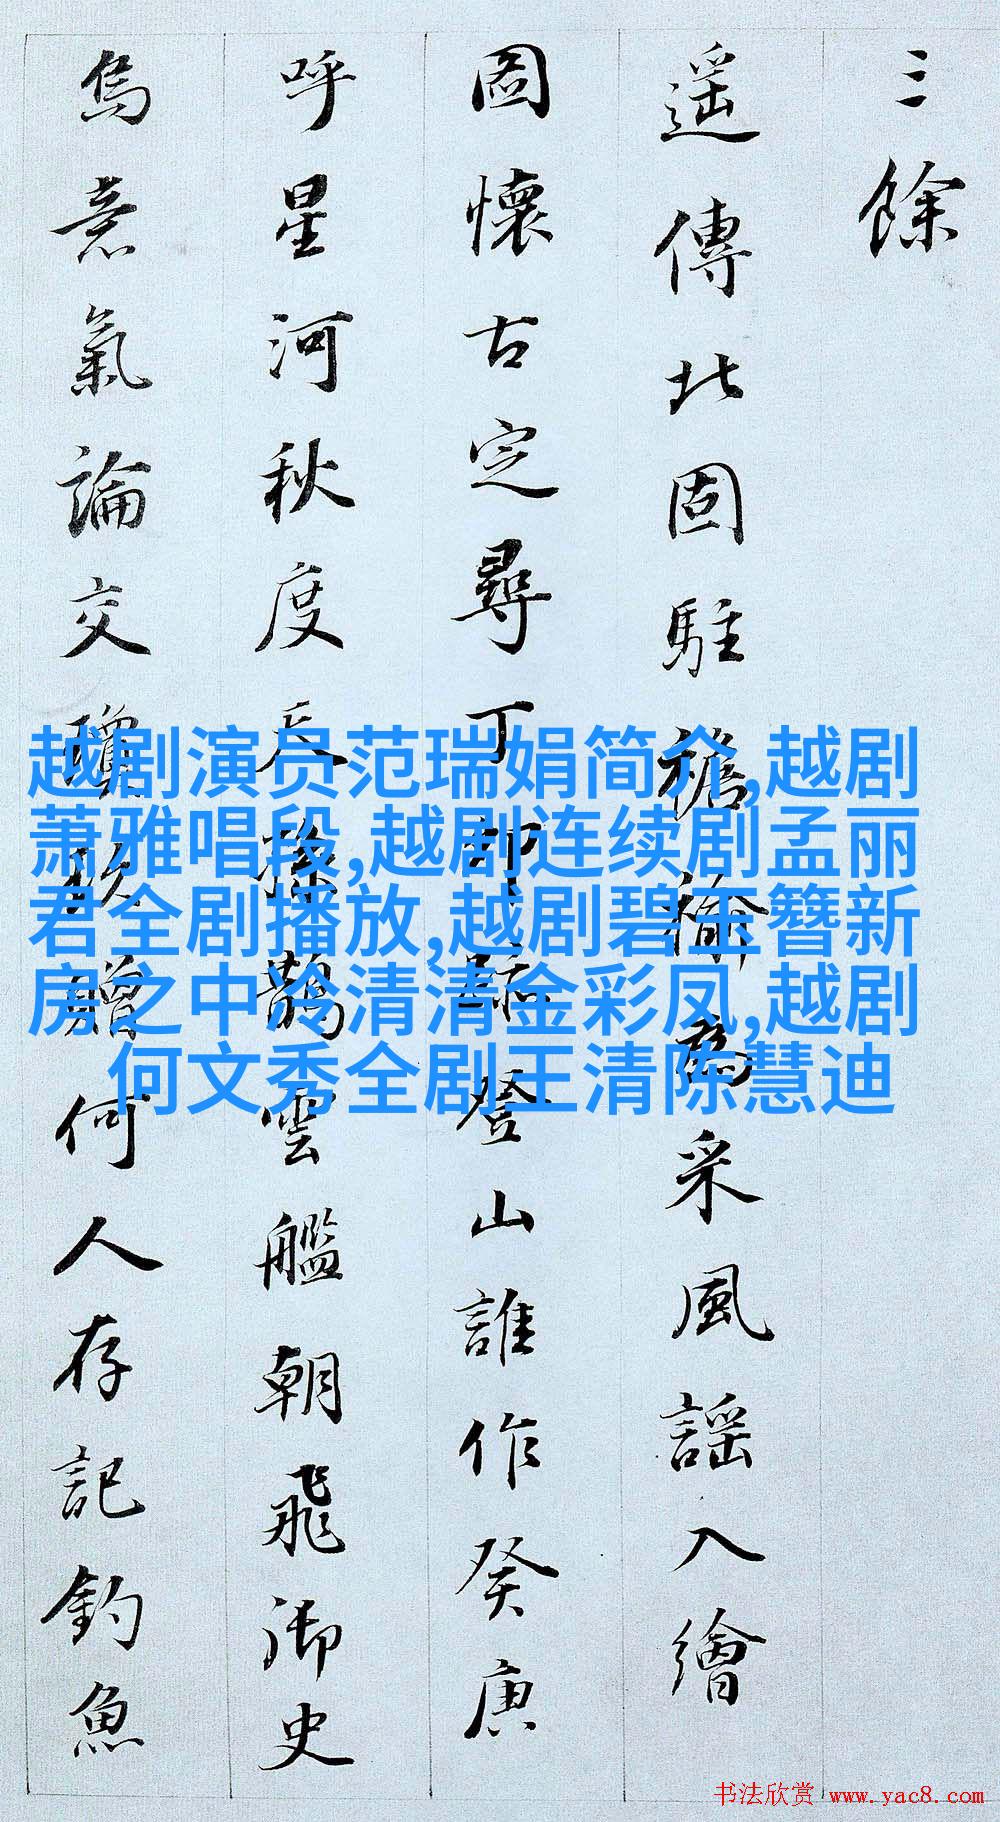 三餘
遥傳北固駐襜褕為采風謡入繪
圖懷古定尋丁卯登山誰作癸庚
呼星河秋度天孫鵲雲艦朝飛御史
烏意氣論交瓊玖贈何人存記釣魚
越剧演员范瑞娟简介,越剧
萧雅唱段,越剧连续剧孟丽
君全剧播放,越剧碧玉簪新
房之中冷清清金彩凤,越剧
何文秀全剧王清陈慧迪
书法欣赏 www.yac8.com